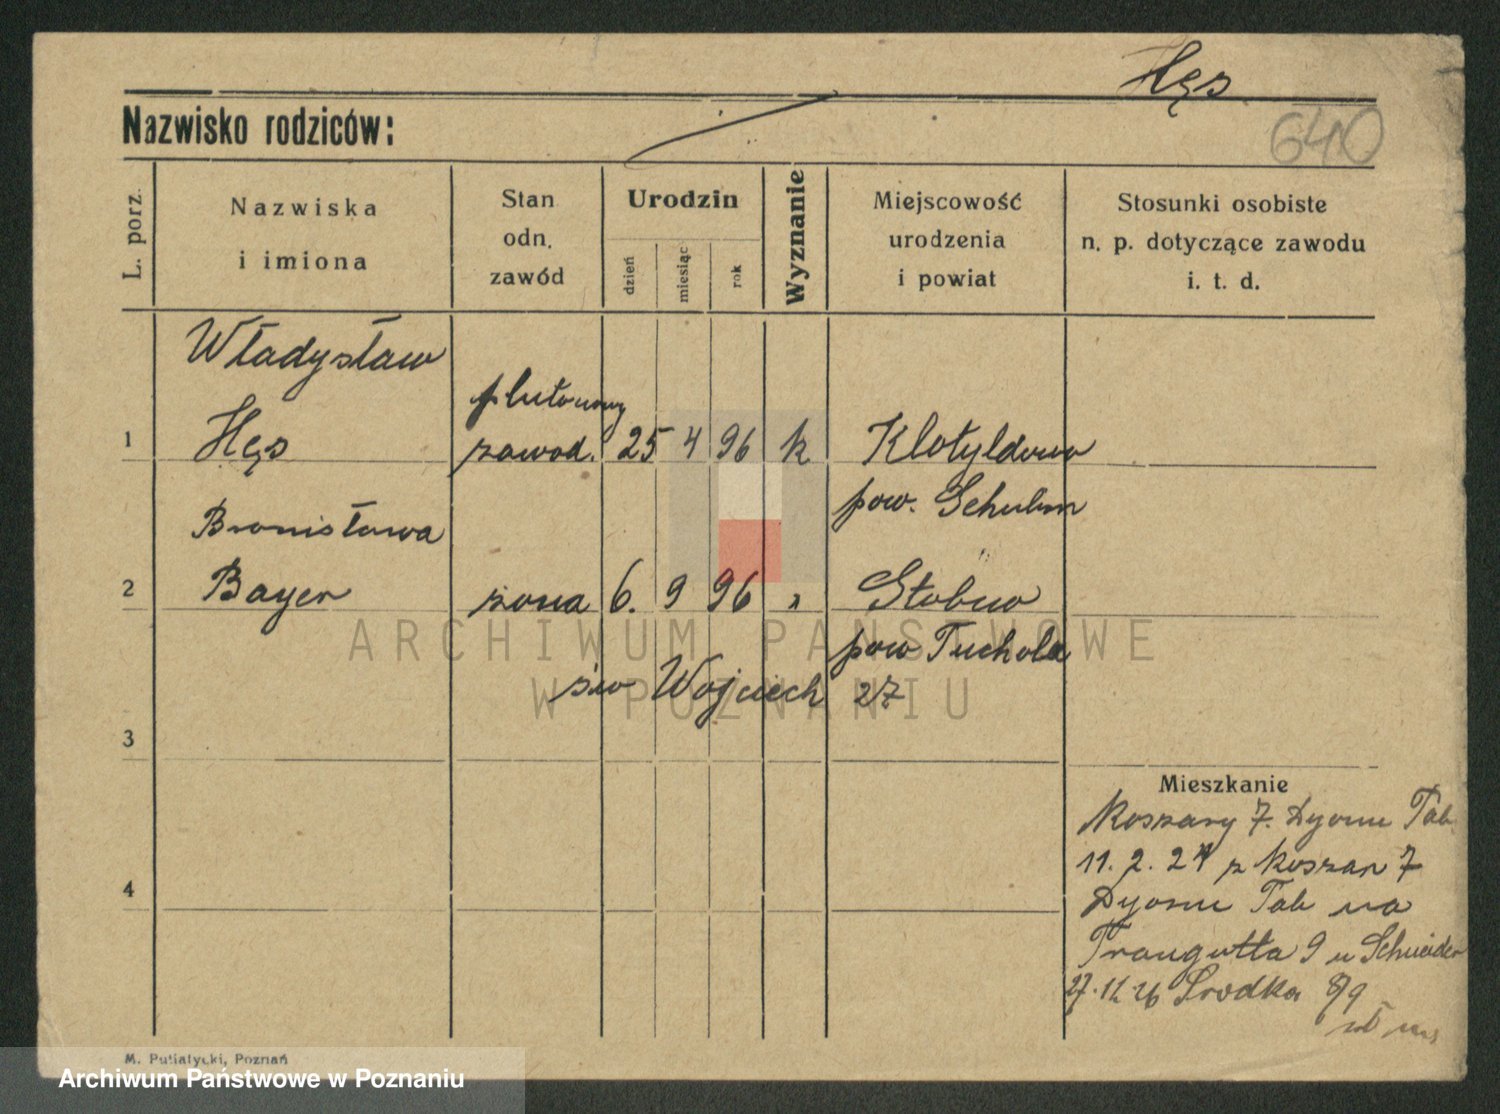 Hęs
640
Nazwisko rodziców:
L. porz.
Nazwiska
i imiona
Stan
odn.
zawód
Urodzin
dzień
miesiąc
rok
Wyznanie
Miejscowość
urodzenia
i powiat
Stosunki osobiste
n. p. dotyczące zawodu
i. t. d.
Władysław
plutonowy
1 Hęs zawod. 25 4 96 k Klotyldowo
pow. Schubin
Bronisława
2 Bayer żona 6. 9 96 " Stobno
pow Tuchola
św Wojciech 27
3
Mieszkanie
Koszary 7. Dyonu Tab
11. 2. 24 z Koszar 7
4
Dyonu Tab na
Traugutta 9 u Schneider
27.11 26 Środka 8/9
M. Putiatycki, Poznań
ARCHIWUM PAŃSTWOWE
W POZNANIU
Archiwum Państwowe w Poznaniu